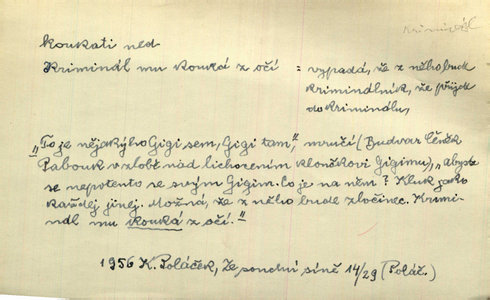 Kriminál
koukati ned.
Kriminál mu kouká z očí = vypadá, že z něho bude
kriminálník, že přijde
do kriminálu,
„To je nějakýho Gigi sem, Gigi tam“, mručí (Budvar Čeněk
v zlobě nad lichocením kloučkovi Gigimu), „abyste
se nepotento se svým Gigim. Co je na něm? Kluk jako
každej jinej. Možná, že z něho bude zločinec. Krimi-
nál mu kouká z očí.“
1956 K. Poláček, Ze soudní síně 14/29 (Poláč.)